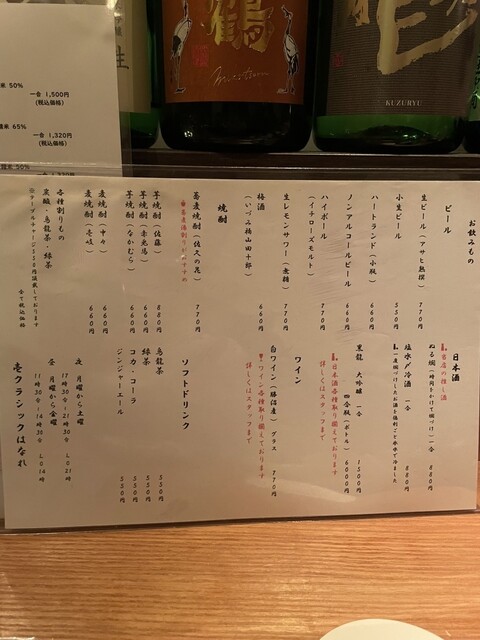 米 50%
一合 1,500円
(税込価格)
精米 65%
一合 1,320円
(税込価格)
鶴
KUZURYU
お飲みもの
ビール
生ビール(アサヒ熟撰) 770円
小生ビール 550円
ハートランド(小瓶) 660円
ノンアルコールビール 660円
ハイボール
(イチローズモルト) 770円
生レモンサワー(麦麹) 770円
梅酒
(いづみ橋山田十郎) 660円
焼酎
蕎麦焼酎(佐久の花) 770円
芋焼酎(佐藤) 880円
芋焼酎(赤兎馬) 660円
芋焼酎(なかむら) 660円
麦焼酎(中々) 660円
麦焼酎(壱岐) 660円
各種割りもの
炭酸・烏龍茶・緑茶
全て税込価格
日本酒
当店の推し酒
ぬる燗(一時間かけて燗づけ)一合 880円
塩水〆冷酒 一合 880円
黒龍 大吟醸 一合 1500円
四合瓶(ボトル) 6000円
日本酒各種取り揃えております
詳しくはスタッフまで
ワイン
白ワイン(勝沼産) グラス 770円
ワイン各種取り揃えております
詳しくはスタッフまで
ソフトドリンク
烏龍茶 550円
緑茶 550円
コカ・コーラ 550円
ジンジャーエール 550円
夜 月曜から土曜
17時30分〜21時30分 LO21時
昼 月曜から金曜
11時30分〜14時30分 LO14時
壱クラシックはなれ